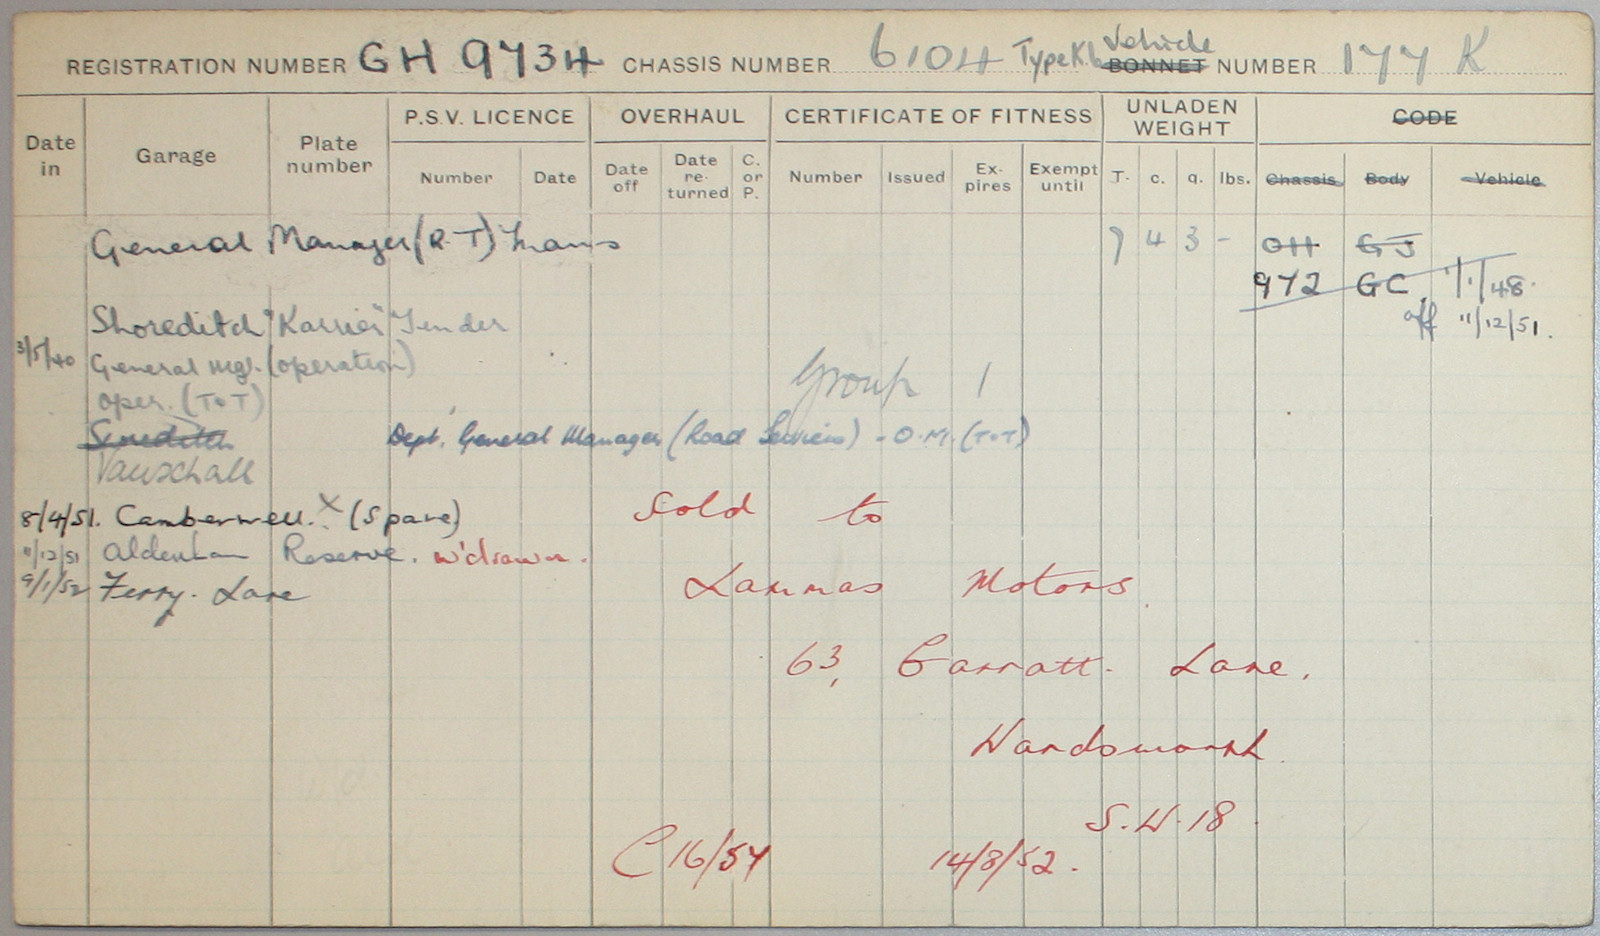 REGISTRATION NUMBER GH 9734 CHASSIS NUMBER 6104 Type Vehicle BONNET NUMBER 177 K
Date in Garage Plate number P.S.V. LICENCE OVERHAUL CERTIFICATE OF FITNESS UNLADEN WEIGHT CODE
Number Date Date off Date re-turned C. or P. Number Issued Ex-pires Exempt until T. c. q. lbs. Chassis Body Vehicle
General Manager (R.T) Trams 7 4 3 - OH GJ
972 GC 1/1/48.
Shoreditch "Karrier" Tender off 11/12/51.
3/5/40 General Mgr. (operation)
Group 1
oper. (T&T)
Dept. General Manager (Road Services) - O.M. (T&T)
Vauxchall
8/4/51. Camberwell. X (Spare) Sold to
11/12/51 Aldenham Reserve. w'drawn.
9/1/52 Ferry. Lane Lammas Motors.
63, Garratt. Lane.
Wandsworth.
S.W.18.
C 16/57 14/8/52.